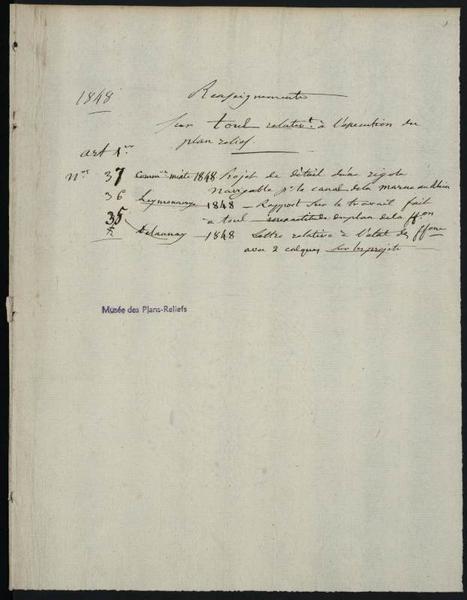 1848
Renseignements
sur toul relatifs à l'execution du
plan relief
art 1er
Nos 37 Comm.on mixte 1848 Projet de détail d'une rigole
navigable pr le canal de la marne au Rhin
36 1848 — Rapport sur le travail fait
à toul — du plan de la ffon
35 Delaunay — 1848 Lettre relative à l'état des ffons
avec 2 calques sur les projets
Musée des Plans-Reliefs